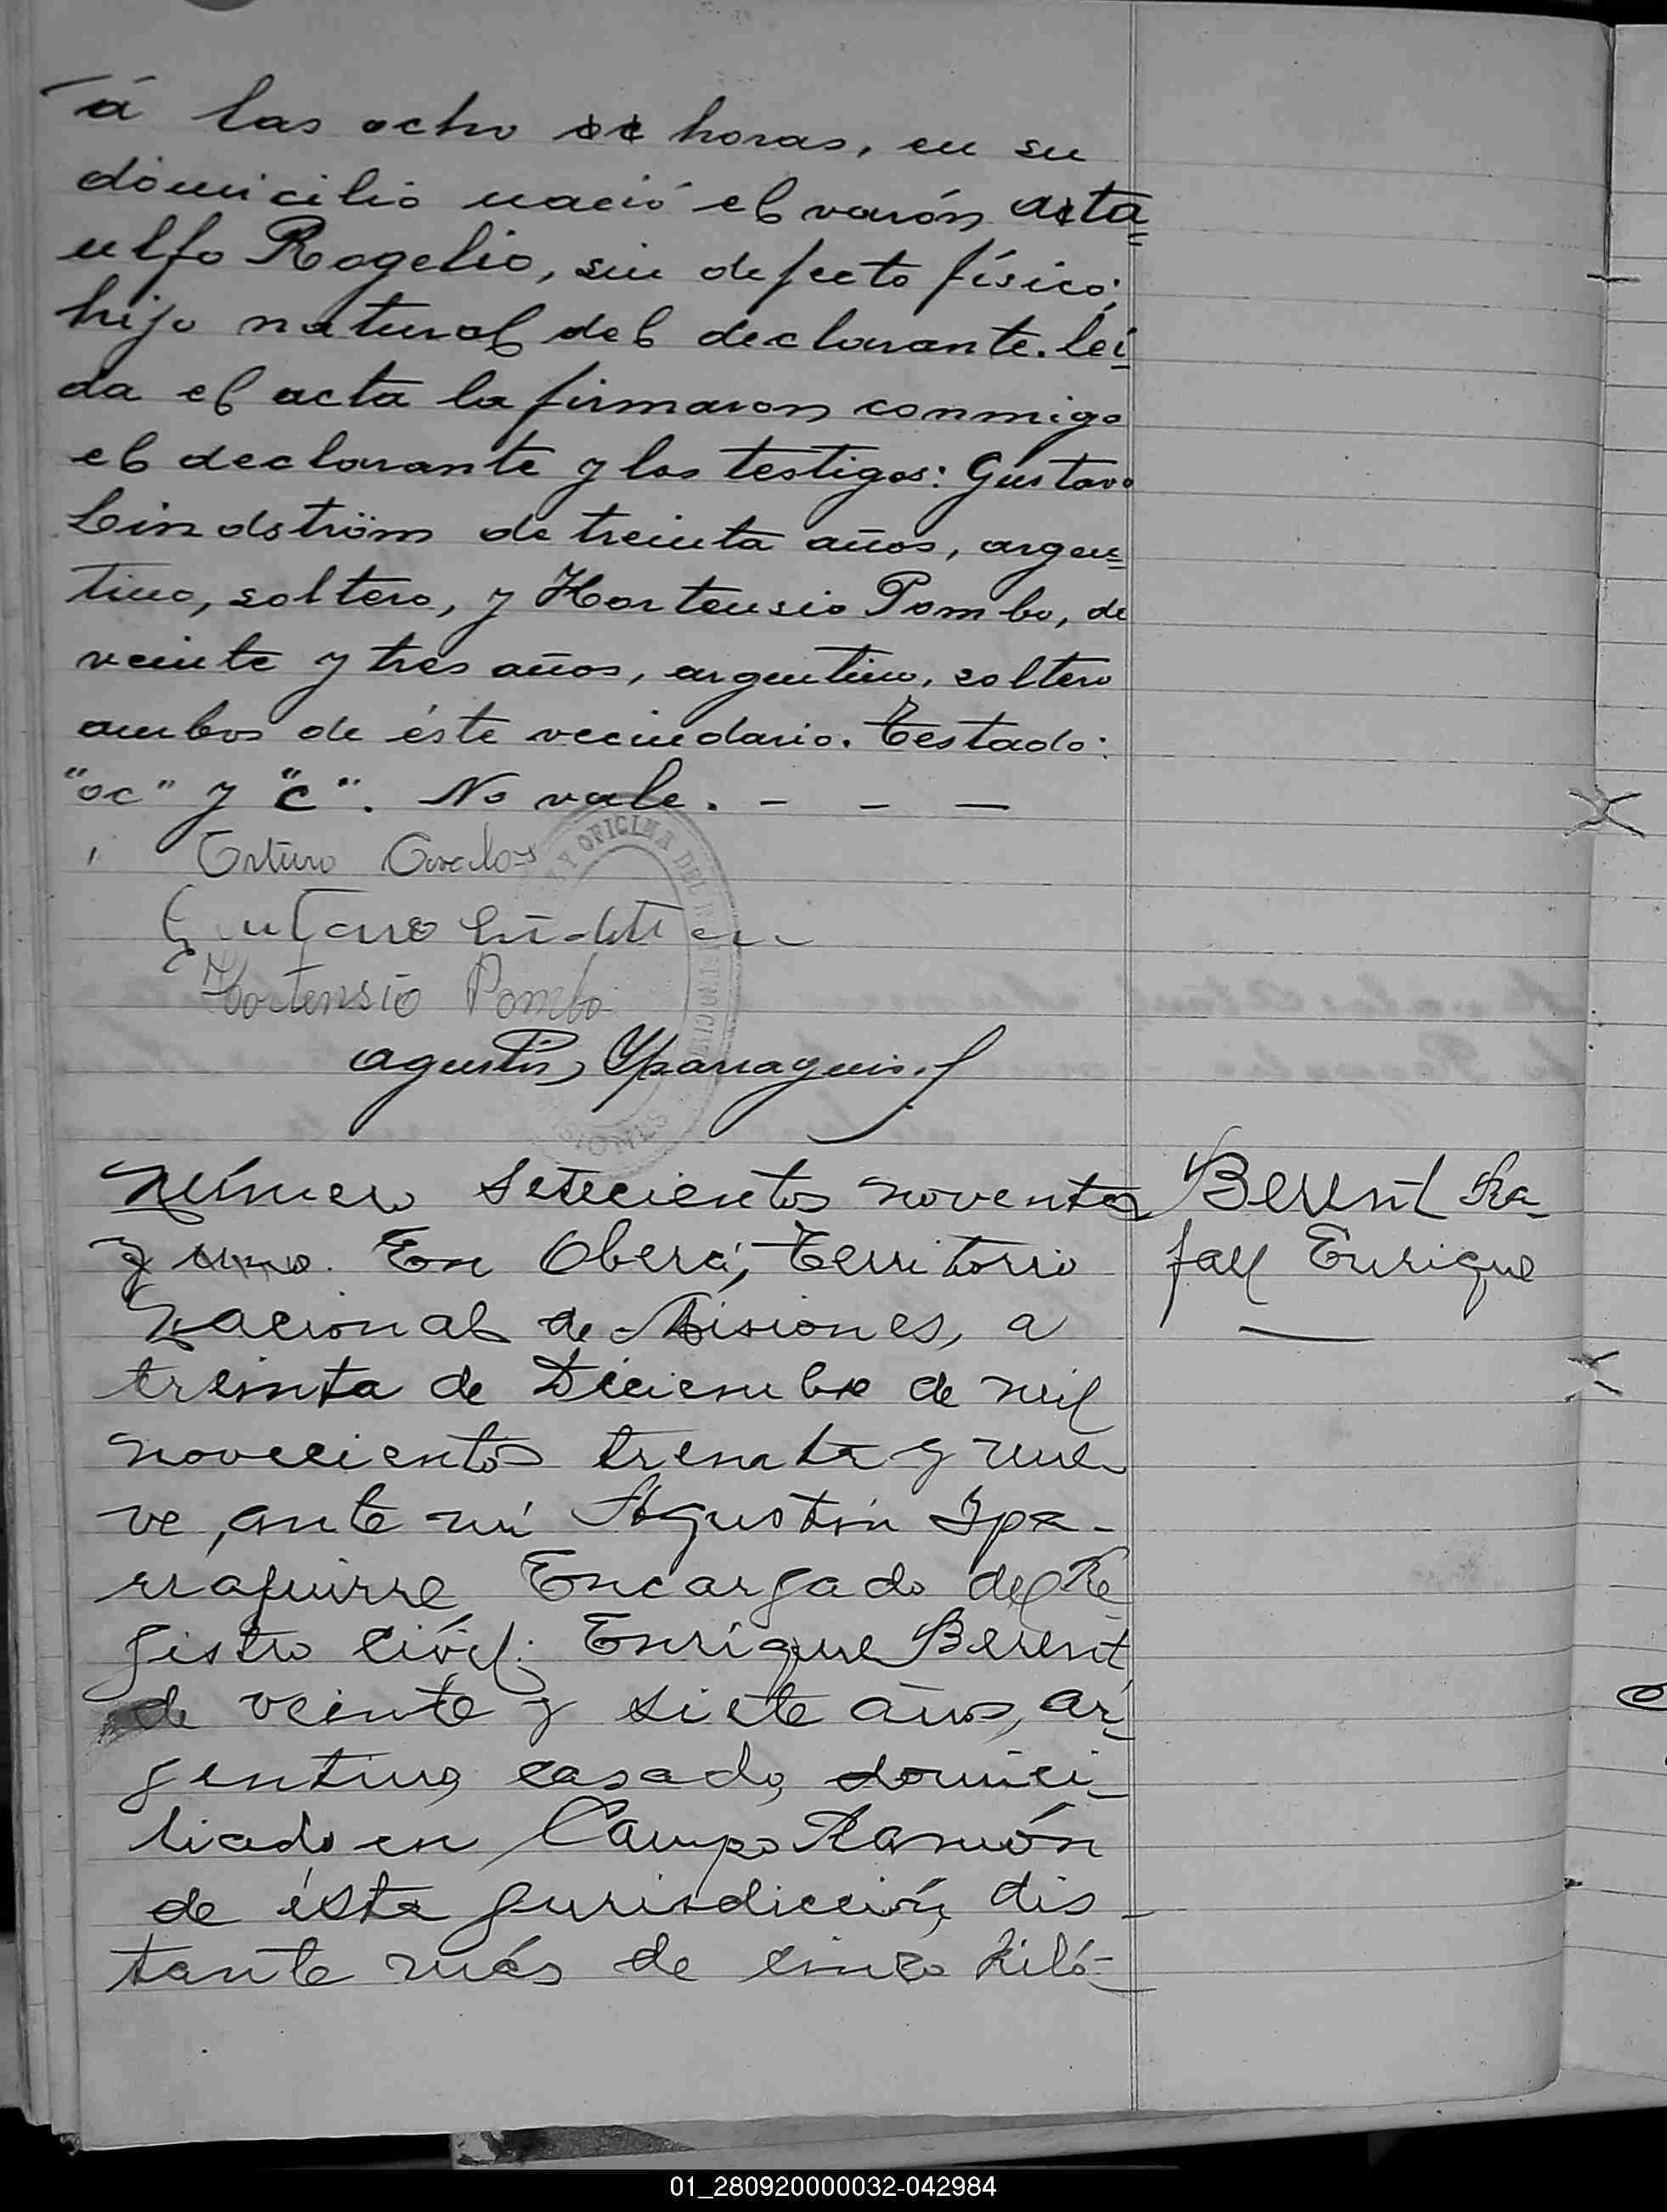 á las ocho oc horas, en su
domicilio nació el varón Acta=
ulfo Rogelio, sin defecto físico;
hijo natural del declarante. Leí
da el acta la firmaron conmigo
el declarante y los testigos: Gustavo
Lindström de treinta años, argen=
tino, soltero, y Hortensio Pombo, de
veinte y tres años, argentino, soltero
ambos de éste vecindario. Testado:
"oc" y "c". No vale. - - -
Arturo Avalos
Gustavo Lindström
Hortensio Pombo
Agustín Yparraguirre
Y OFICINA DEL
MISIONES
Número Setecientos noventa
y uno. En Oberá, Territorio
Nacional de Misiones, a
treinta de Diciembre de mil
novecientos treinta y nue-
ve, ante mí Agustín Ypa-
rraguirre, Encargado del Re
gistro Civil: Enrique Berent
de veinte y siete años, ar-
gentino, casado, domici-
liado en Campo Ramón
de ésta jurisdicción, dis-
tante más de cinco kiló-
Berent Ra-
fael Enrique
01_280920000032-042984